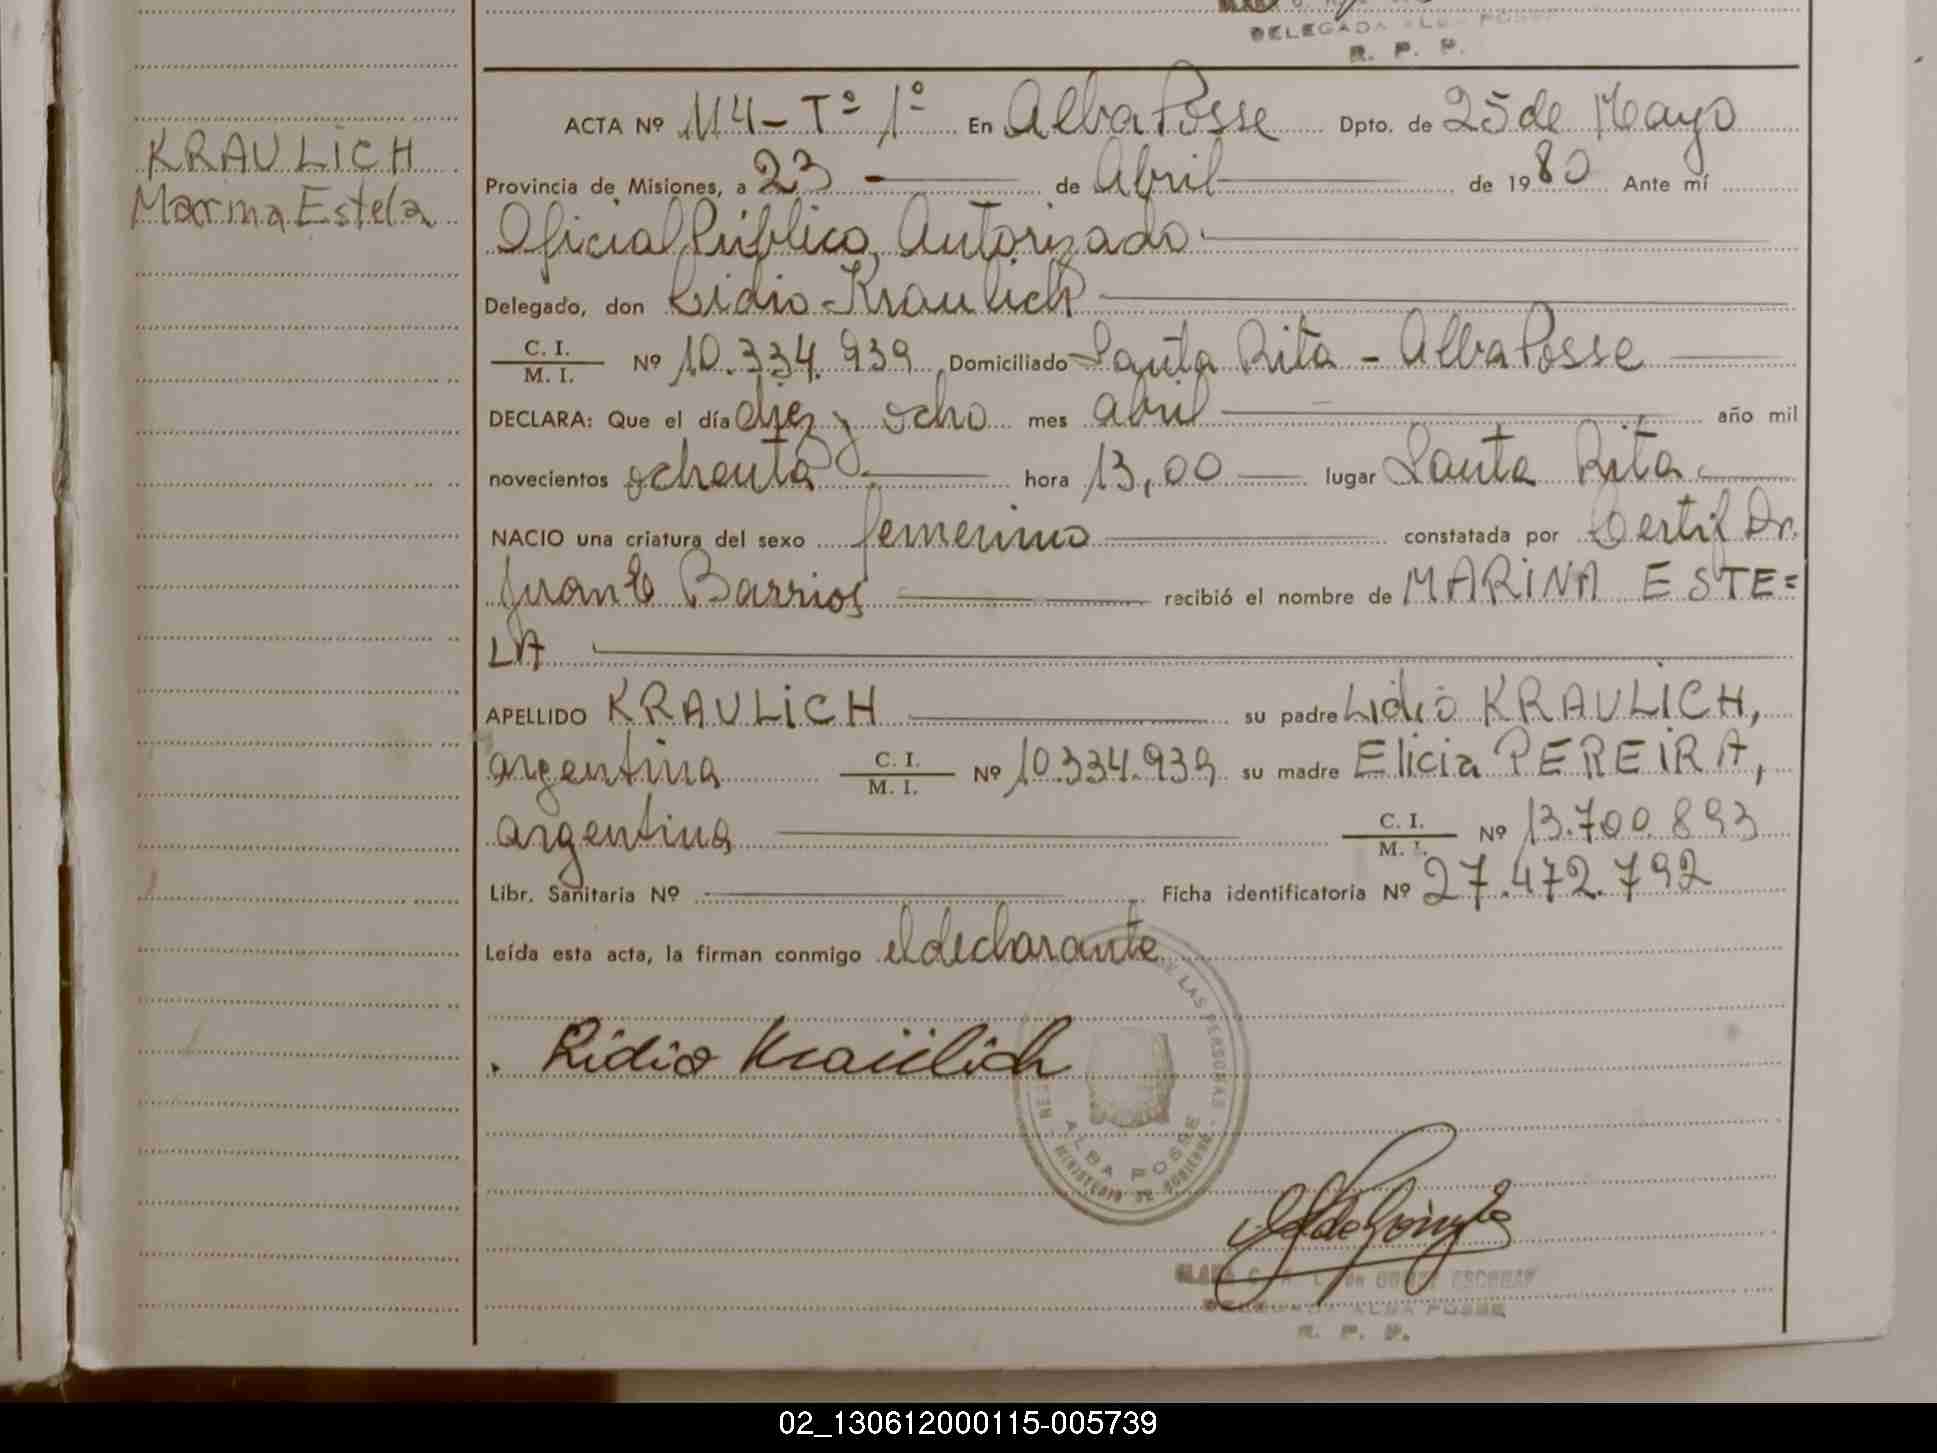 DELEGADA ALBA POSSE
R. P. P.
KRAULICH
Marina Estela
ACTA Nº 114 - Tº 1º En Alba Posse Dpto. de 25 de Mayo
Provincia de Misiones, a 23 - de Abril de 1980 Ante mí
Oficial Público Autorizado
Delegado, don Lidio Kraulich
C. I.
M. I. Nº 10.334.939 Domiciliado Santa Rita - Alba Posse
DECLARA: Que el día diez y ocho mes abril año mil
novecientos ochenta hora 13,00 lugar Santa Rita
NACIO una criatura del sexo femenino constatada por Certif Dr.
Juan E Barrios recibió el nombre de MARINA ESTE=
LA
APELLIDO KRAULICH su padre Lidio KRAULICH,
argentina C. I.
M. I. Nº 10.334.939 su madre Elicia PEREIRA,
argentina C. I.
M. I. Nº 13.700.893
Libr. Sanitaria Nº Ficha identificatoria Nº 27.472.792
Leída esta acta, la firman conmigo el declarante
Lidio Kraülich
DE LAS PERSONAS
ALBA POSSE
MINISTERIO DE GOBIERNO
ESCOBAR
DELEGADA ALBA POSSE
R. P. P.
02_130612000115-005739